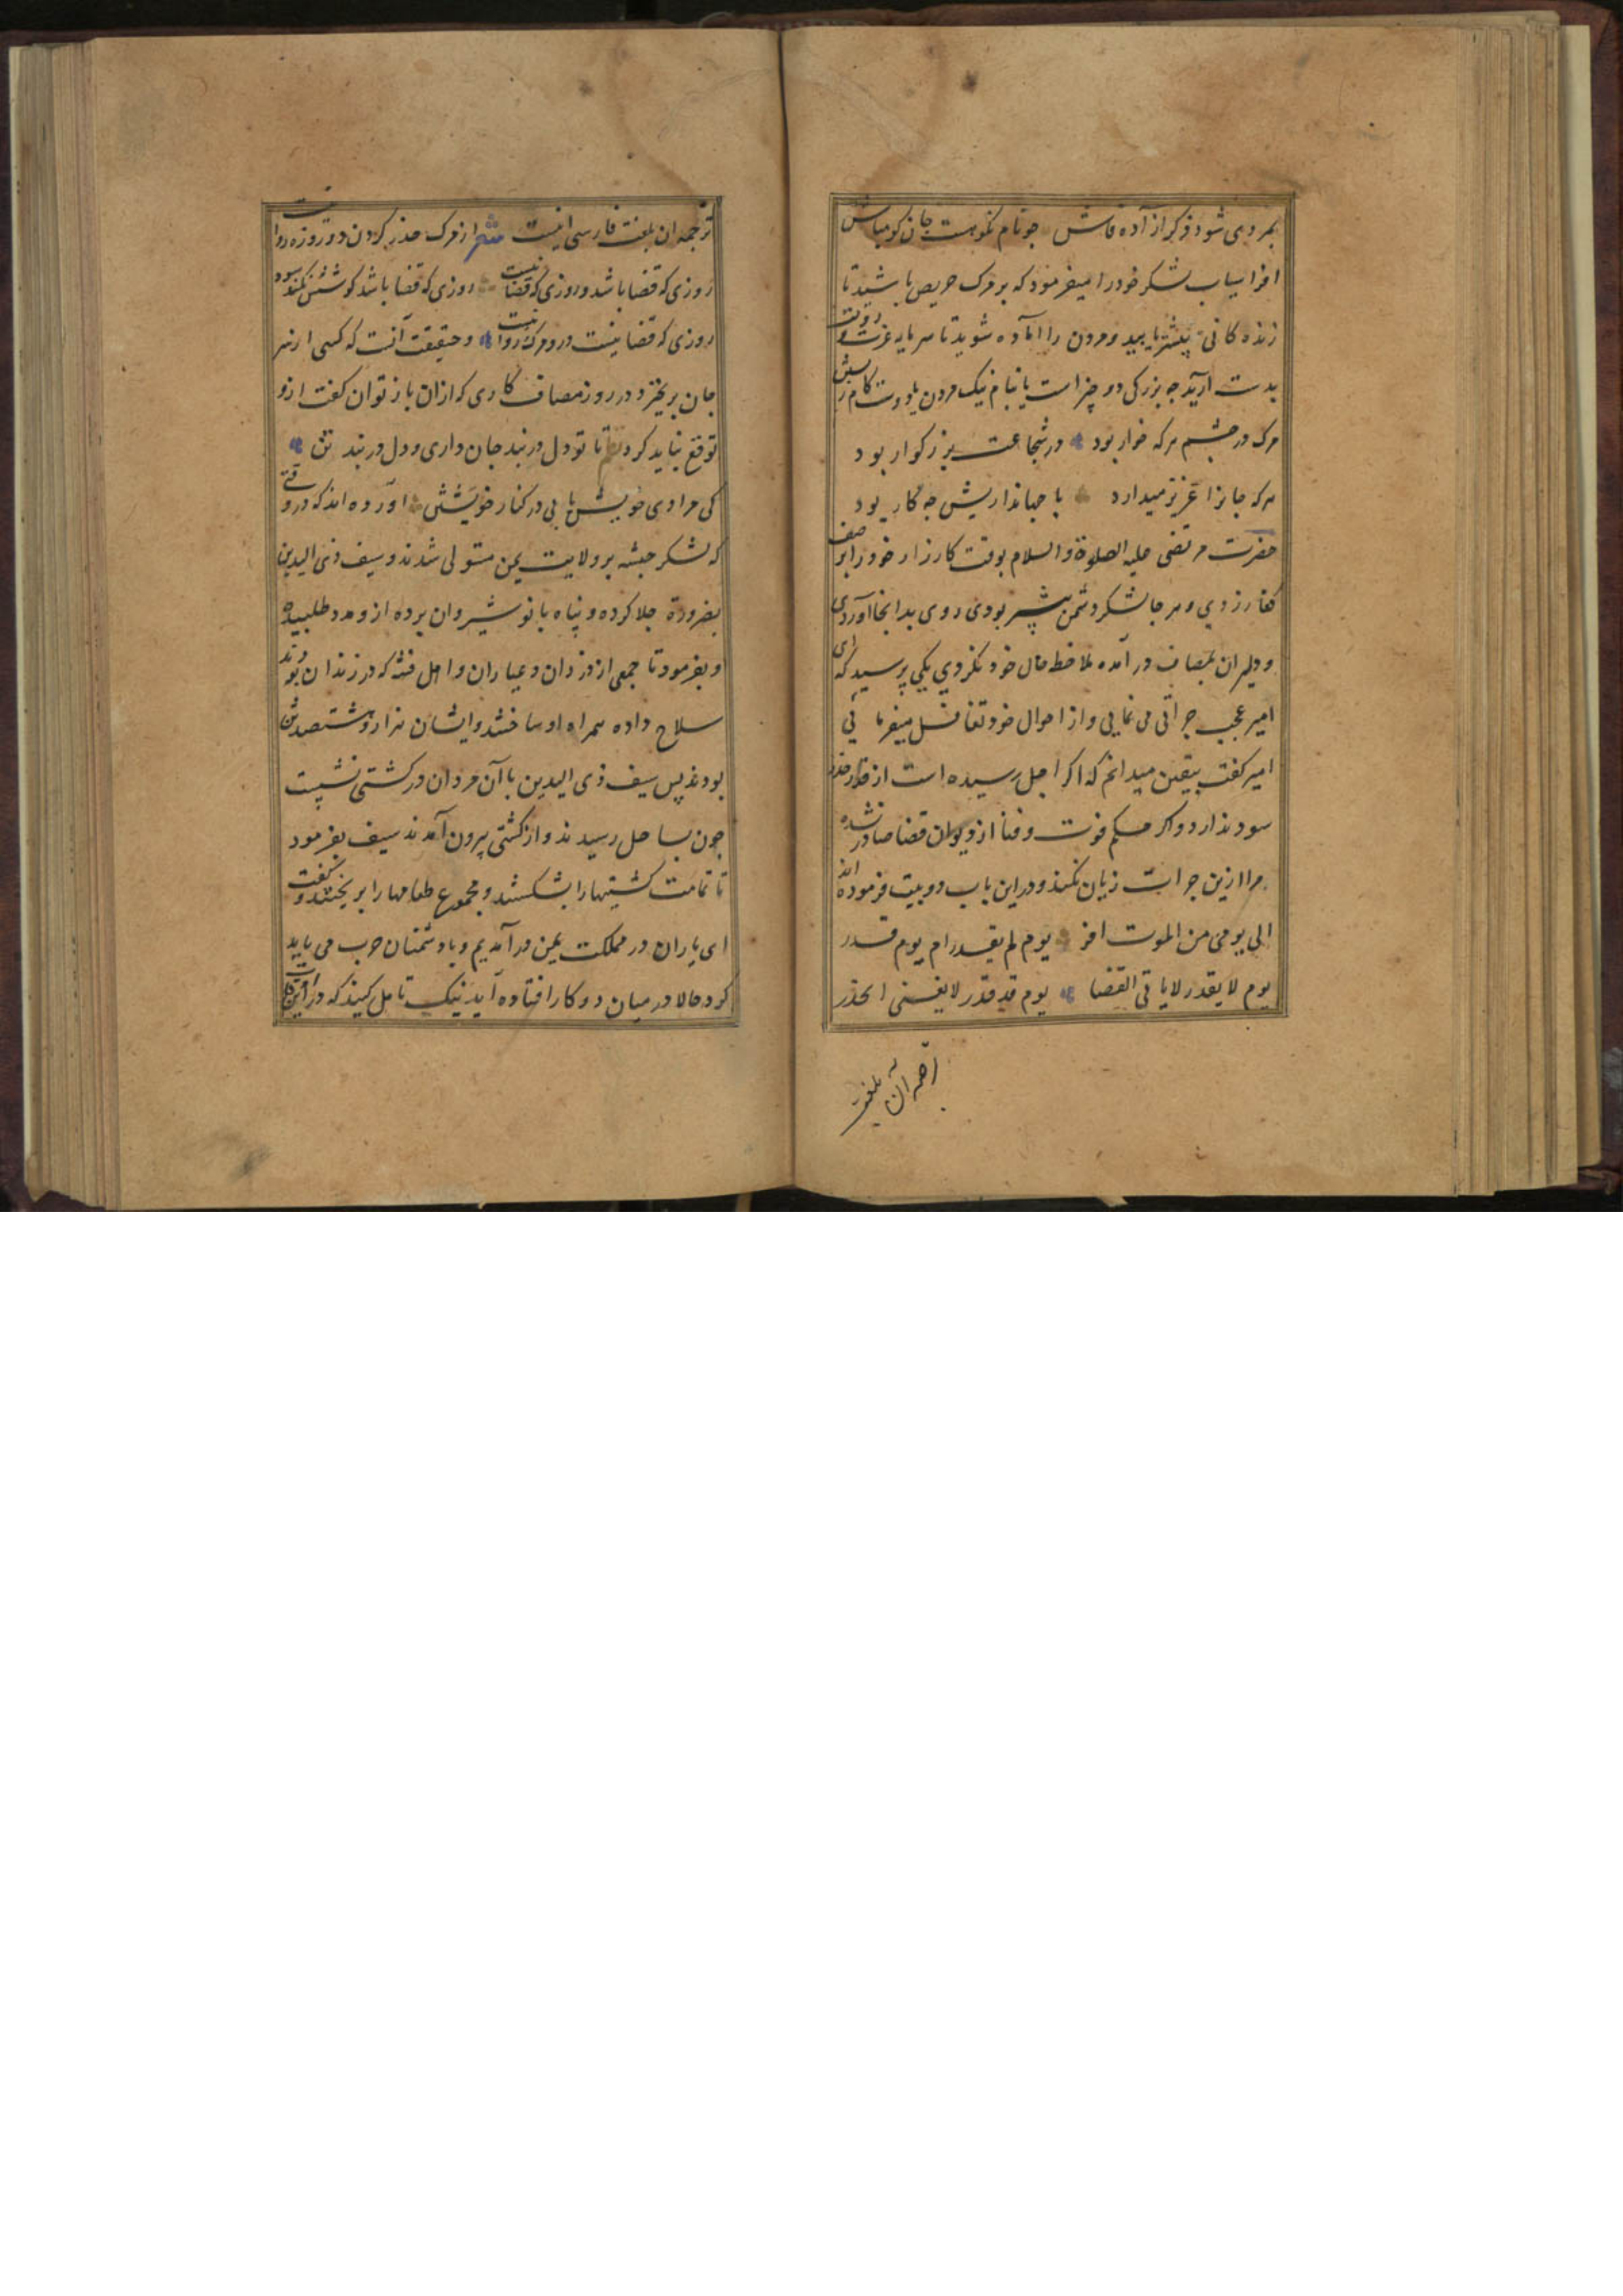 بمردی شود ذکر از آده فاش جو نام نکو هست جان کو مباش
افراسیاب لشکر خود را میفرمود که بر مرک حریص باشید تا
زنده کانی بیشتر یابید و مردن را اماده شوید تا سرمایه عزت و دولت
بدست ارید جه بزرکی دو چیز است یا نیام نیک مردن یا دوست کام زیستن
مرک در جشم هرکه خوار بود در شجاعت بزرکوار بود
هرکه جانرا عزیز میدارد با جهانداریش جه کار بود
حضرت مرتضی علیه الصلوة والسلام بوقت کارزار خود را بر صف
کفار زدی و هر جا لشکر دشمن بیشتر بودی روی بدانجا آوردی
و دلیران بمصاف در آمده ملاحظه حال خود نکردی یکی پرسید که ای
امیر عجب جراتی می نمایی و از احوال خود تغافل میفرمائی
امیر کفت بیقین میدانم که اکر اجل رسیده است از قدر حذر
سود ندارد و اکر حکم فوت و فنا از دیوان قضا صادر نشده
مرا ازین جرات زیان نکند و در این باب دو بیت فرموده اند
الی یومی من الموت افر یوم لم یقدر ام یوم قدر
یوم لا یقدر لا یاتی القضا یوم قد قدر لا یغنی الحذر
ترجمه ان بلغت
ترجمه ان بلغت فارسی اینست شعر از مرک حذر کردن دو روزه روا نیست
روزی که قضا باشد و روزی که قضا نیست روزی که قضا باشد کوشش نکند سود
روزی که قضا نیست درو مرک روا نیست و حقیقت آنست که کسی از سر
جان برخیزد در روز مصاف کاری کر ازان باز توان کفت ازو
توقع نباید کرد نظم تا تو دل در بند جان داری و دل در بند تن
کی مرادی خویش یابی در کنار خویشتن اورده اند که در وقتی
که لشکر حبشه بر ولایت یمن مستولی شدند و سیف ذی الیدین
بضرورة جلا کرده و پناه بانوشیروان برده ازو مدد طلبید
و بفرمود تا جمعی از دزدان و عیاران و اهل فتنه که در زندان بودند
سلاح داده همراه او ساختند و ایشان هزار و هشتصد تن
بودند پس سیف ذی الیدین با آن مردان در کشتی نشست
جون بساحل رسیدند و از کشتی بیرون آمدند سیف بفرمود
تا تمامت کشتیها را بشکستند و مجموع طعامها را بریختند و کفت
ای یاران در مملکت یمن در آمدیم و با دشمنان حرب می باید
کرد حالا در میان دو کار افتاده آید نیک تامل کنید که در این